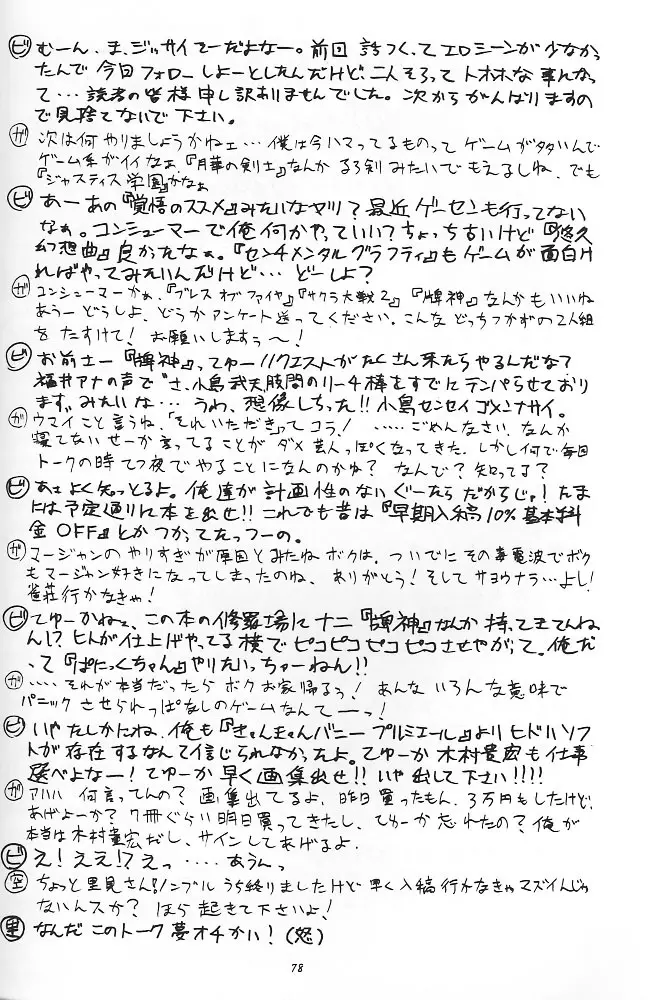 ビ むーん、ま、ジッサイそーだよなー。前回 詰つくってエロシーンが少なかっ
たんで今日フォローしよーとしたんだけど、二人そろってトホホな事んなっ
て…読者の皆様申し訳ありませんでした。次からがんばりますの
で見捨てないで下さい。
ガ 次は何やりましょうかねェ…僕は今ハマってるものってゲームが多いんで
ゲーム系がイイなぁ、『月華の剣士』なんか るろ剣みたいでもえるしね、でも
『ジャスティス学園』かなぁ
ビ あーあの『覚悟のススメ』みたいなヤツ？最近ゲーセンも行ってない
なぁ。コンシューマーで俺何かやっていい？ちょっち古いけど『悠久
幻想曲』良かったなぁ。『センチメンタルグラフティ』もゲームが面白け
ればやってみたいんだけど…どーしよ？
ガ コンシューマーかぁ、『ブレスオブファイヤ』『サクラ大戦2』『牌神』なんかもいいね
あうーどうしよ、どうかアンケート送ってください。こんなどっちつかずの2人組
をたすけて！お願いしますぅ〜！
ビ お前さー『牌神』ってゆーリクエストがたくさん来たらやるんだな？
福井アナの声で"さ、小島武夫股間のリーチ棒をすでにテンパらせており
ます"みたいな…うわ、想像しちった!!小島センセイゴメンナサイ。
ガ ウマイこと言うね、「それいただきっ」てコラ！……ごめんなさい、なんか
寝てないせーか言ってることがダメ芸人っぽくなってきた。しかし何で毎回
トークの時てつ夜でやることになんのかね？なんで？知ってる？
ビ ああよく知っとるよ。俺達が計画性のないぐーたらだからじゃ！たま
には予定通りに本を出せ!!これでも昔は『早期入稿10%基本料
金OFF』とかつかってたっつーの。
ガ マージャンのやりすぎが原因とみたねボクは。ついでにその毒電波でボク
もマージャン好きになってしまったのね、ありがとう！そしてサヨウナラ…よし！
雀荘行かなきゃ！
ビ てゆーかねェ、この本の修羅場にナニ『牌神』なんか持ってきてんね
ん!?ヒトが仕上げやってる横でピコピコピコピコさせやがって。俺だ
って『ぱにっくちゃん』やりたいっちゅーねん!!
ガ ……それが本当だったらボクお家帰るっ！あんないろんな意味で
パニックさせられっぱなしのゲームなんてーーっ！
ビ いやたしかにね、俺も『きゃんきゃんバニープルミエール』よりヒドいソフ
トが存在するなんて信じられなかったよ。てゆーか木村貴宏も仕事
選べよなー！てゆーか早く画集出せ!!いや出して下さい!!!!
ガ アハハ 何言ってんの？画集出てるよ、昨日買ったもん、3万円もしたけど、
あげよーか？7冊ぐらい明日買ってきたし、てゆーか忘れたの？俺が
本当は木村貴宏だし、サインしてあげるよ。
ビ え！ええ!?えっ……あうんっ
空 ちょっと里見さん！ノンブルうち終りましたけど早く入稿行かなきゃマズイんじゃ
ないんスか？ほら起きて下さいよ！
里 なんだこのトーク夢オチかい！（怒）
78